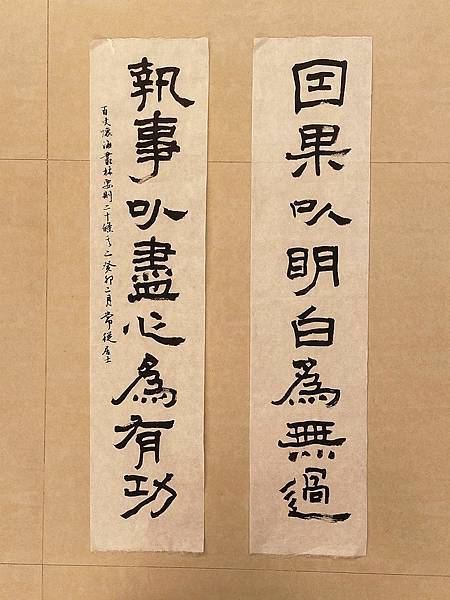 因果以明白為無過
執事以盡心為有功
百丈懷海叢林要則二十條之二癸卯二月常從居士